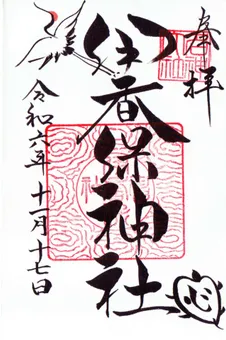 奉拝
伊香保神社
令和六年十一月十七日
心